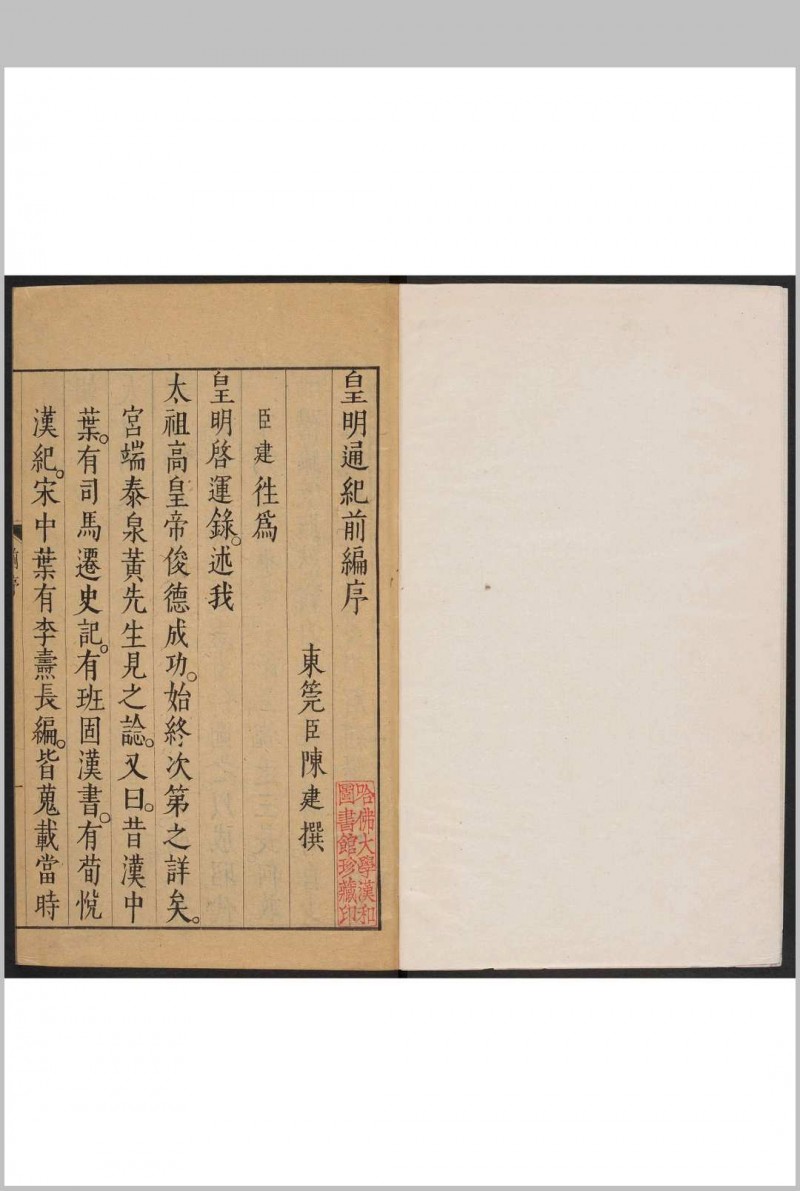 皇明通紀前編序
東筦臣陳建撰
臣建徃爲
皇明啓運錄。述我
太祖高皇帝俊德成功。始終次第之詳矣。
宮端泰泉黃先生見之諗。又曰。昔漢中
葉。有司馬遷史記。有班固漢書。有荀悅
漢紀。宋中葉有李燾長編。皆蒐載當時
哈佛大學漢和
圖書館珍藏印